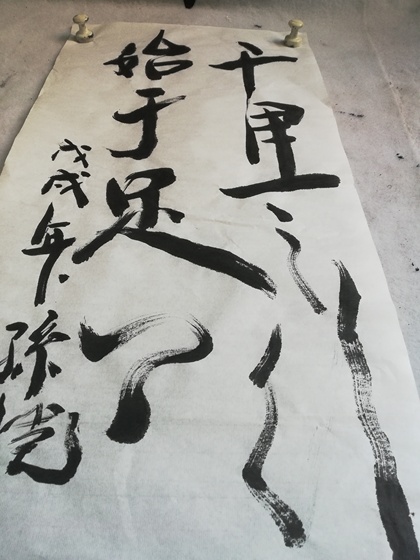 千里之行
始于足下
戊戌年